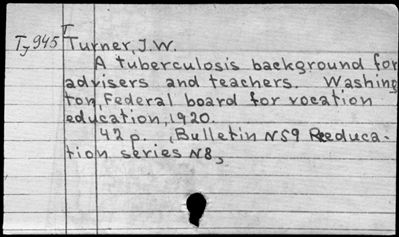 T
Ty945 Turner, J.W.
A tuberculosis background for
advisers and teachers. Washing
ton, Federal board for vocation
education, 1920.
42 p. (Bulletin N59 Reeduca-
tion series N8)